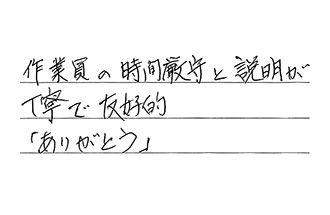 作業員の時間厳守と説明が
丁寧で友好的
「ありがとう」